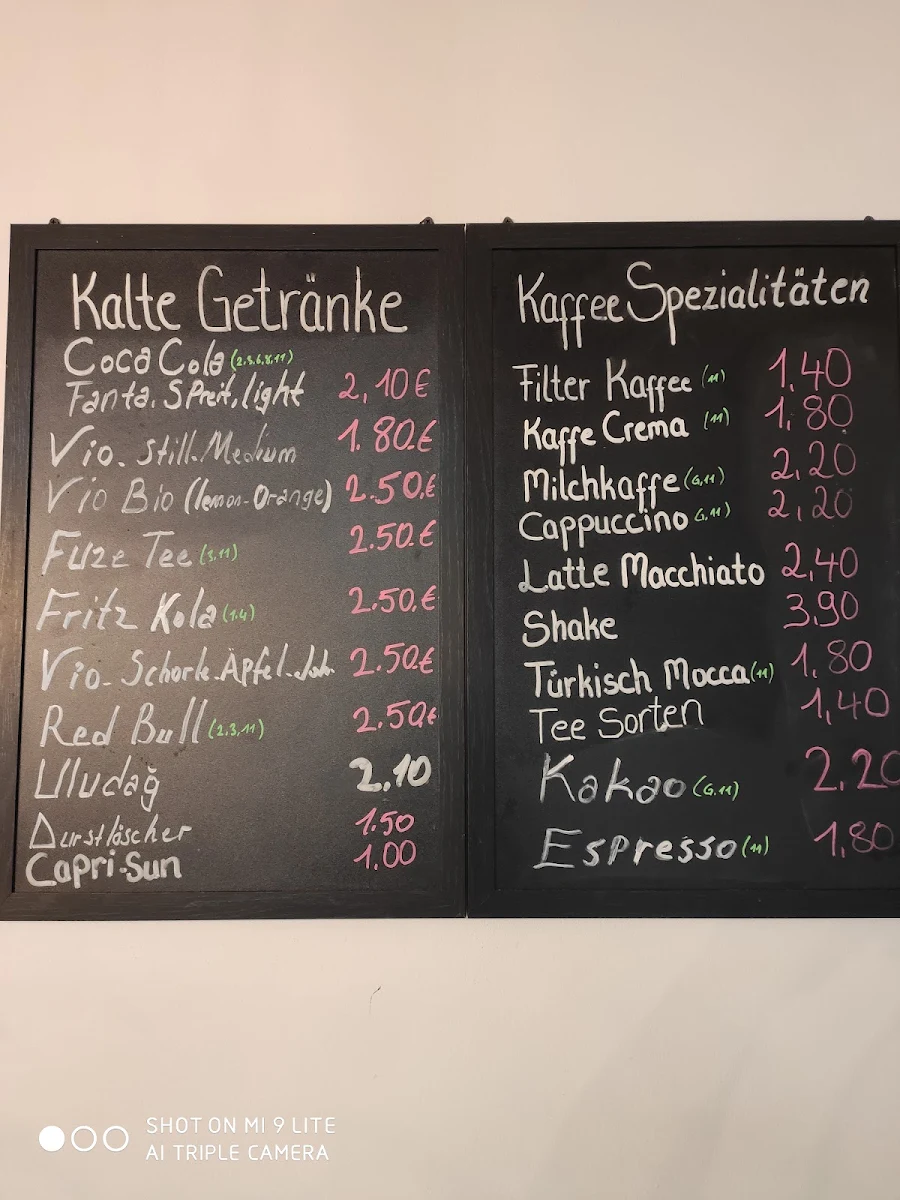 Kalte Getränke
Coca Cola (2.3.6.8.11)
Fanta. SPreit, light 2,10€
Vio. Still. Medium 1.80.€
Vio Bio (lemon-Orange) 2.50.€
Fuze Tee (3,11) 2.50.€
Fritz Kola (1.4) 2.50.€
Vio. Schorle. Äpfel. Joh. 2.50€
Red Bull (2.3,11) 2.50€
Uludağ 2,10
Durstläscher 1.50
Capri-Sun 1,00
Kaffee Spezialitäten
Filter Kaffee (11) 1,40
Kaffe Crema (11) 1,80
Milchkaffe (G,11) 2,20
Cappuccino G,11) 2,20
Latte Macchiato 2,40
Shake 3,90
Türkisch Mocca (11) 1,80
Tee Sorten 1,40
Kakao (G,11) 2,20
Espresso (11) 1,80
SHOT ON MI 9 LITE
AI TRIPLE CAMERA